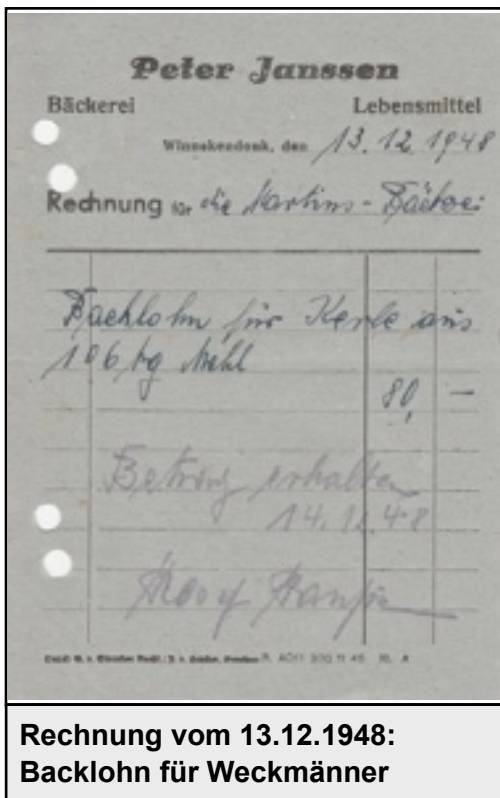 Peter Janssen
Bäckerei Lebensmittel
Winnekendonk, den 13.12.1948
Rechnung für die Martins-Bäckerei
Backlohn für Kerle aus
106 kg Mehl
80,—
Betrag erhalten
14.12.48
Rechnung vom 13.12.1948:
Backlohn für Weckmänner